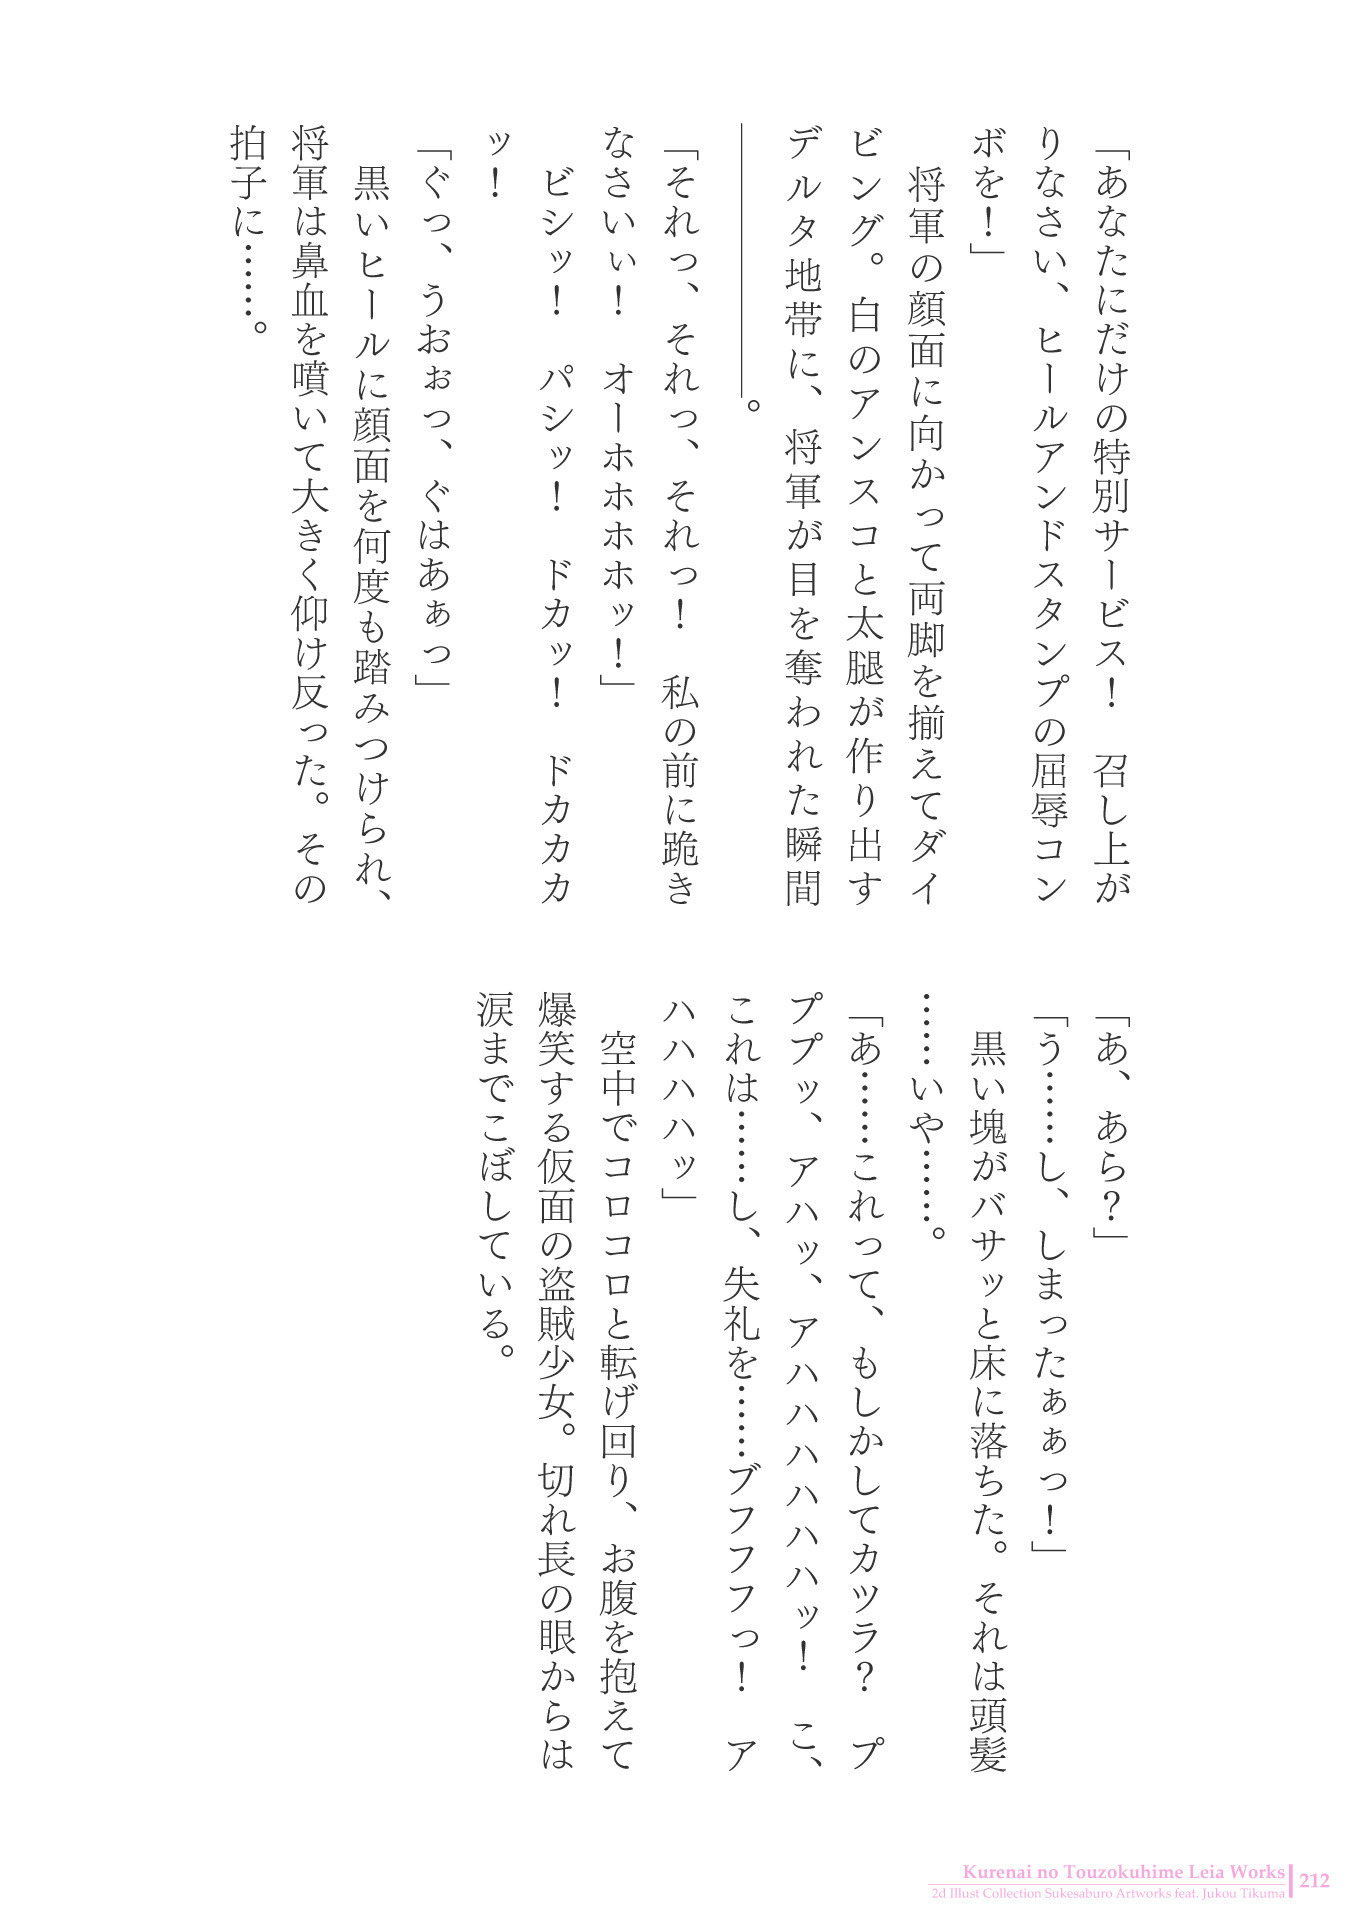 「あなたにだけの特別サービス！　召し上が
りなさい、ヒールアンドスタンプの屈辱コン
ボを！」
　将軍の顔面に向かって両脚を揃えてダイ
ビング。白のアンスコと太腿が作り出す
デルタ地帯に、将軍が目を奪われた瞬間
―――――――。
「それっ、それっ、それっ！　私の前に跪き
なさいぃ！　オーホホホホッ！」
　ビシッ！　パシッ！　ドカッ！　ドカカカ
ッ！
「ぐっ、うおぉっ、ぐはあぁっ」
　黒いヒールに顔面を何度も踏みつけられ、
将軍は鼻血を噴いて大きく仰け反った。その
拍子に……。
「あ、あら？」
「う……し、しまったぁぁっ！」
　黒い塊がバサッと床に落ちた。それは頭髪
……いや……。
「あ……これって、もしかしてカツラ？　プ
ププッ、アハッ、アハハハハハハッ！　こ、
これは……し、失礼を……ブフフフっ！　ア
ハハハハッ」
　空中でコロコロと転げ回り、お腹を抱えて
爆笑する仮面の盗賊少女。切れ長の眼からは
涙までこぼしている。
Kurenai no Touzokuhime Leia Works
2d Illust Collection Sukesaburo Artworks feat. Jukou Tikuma
212